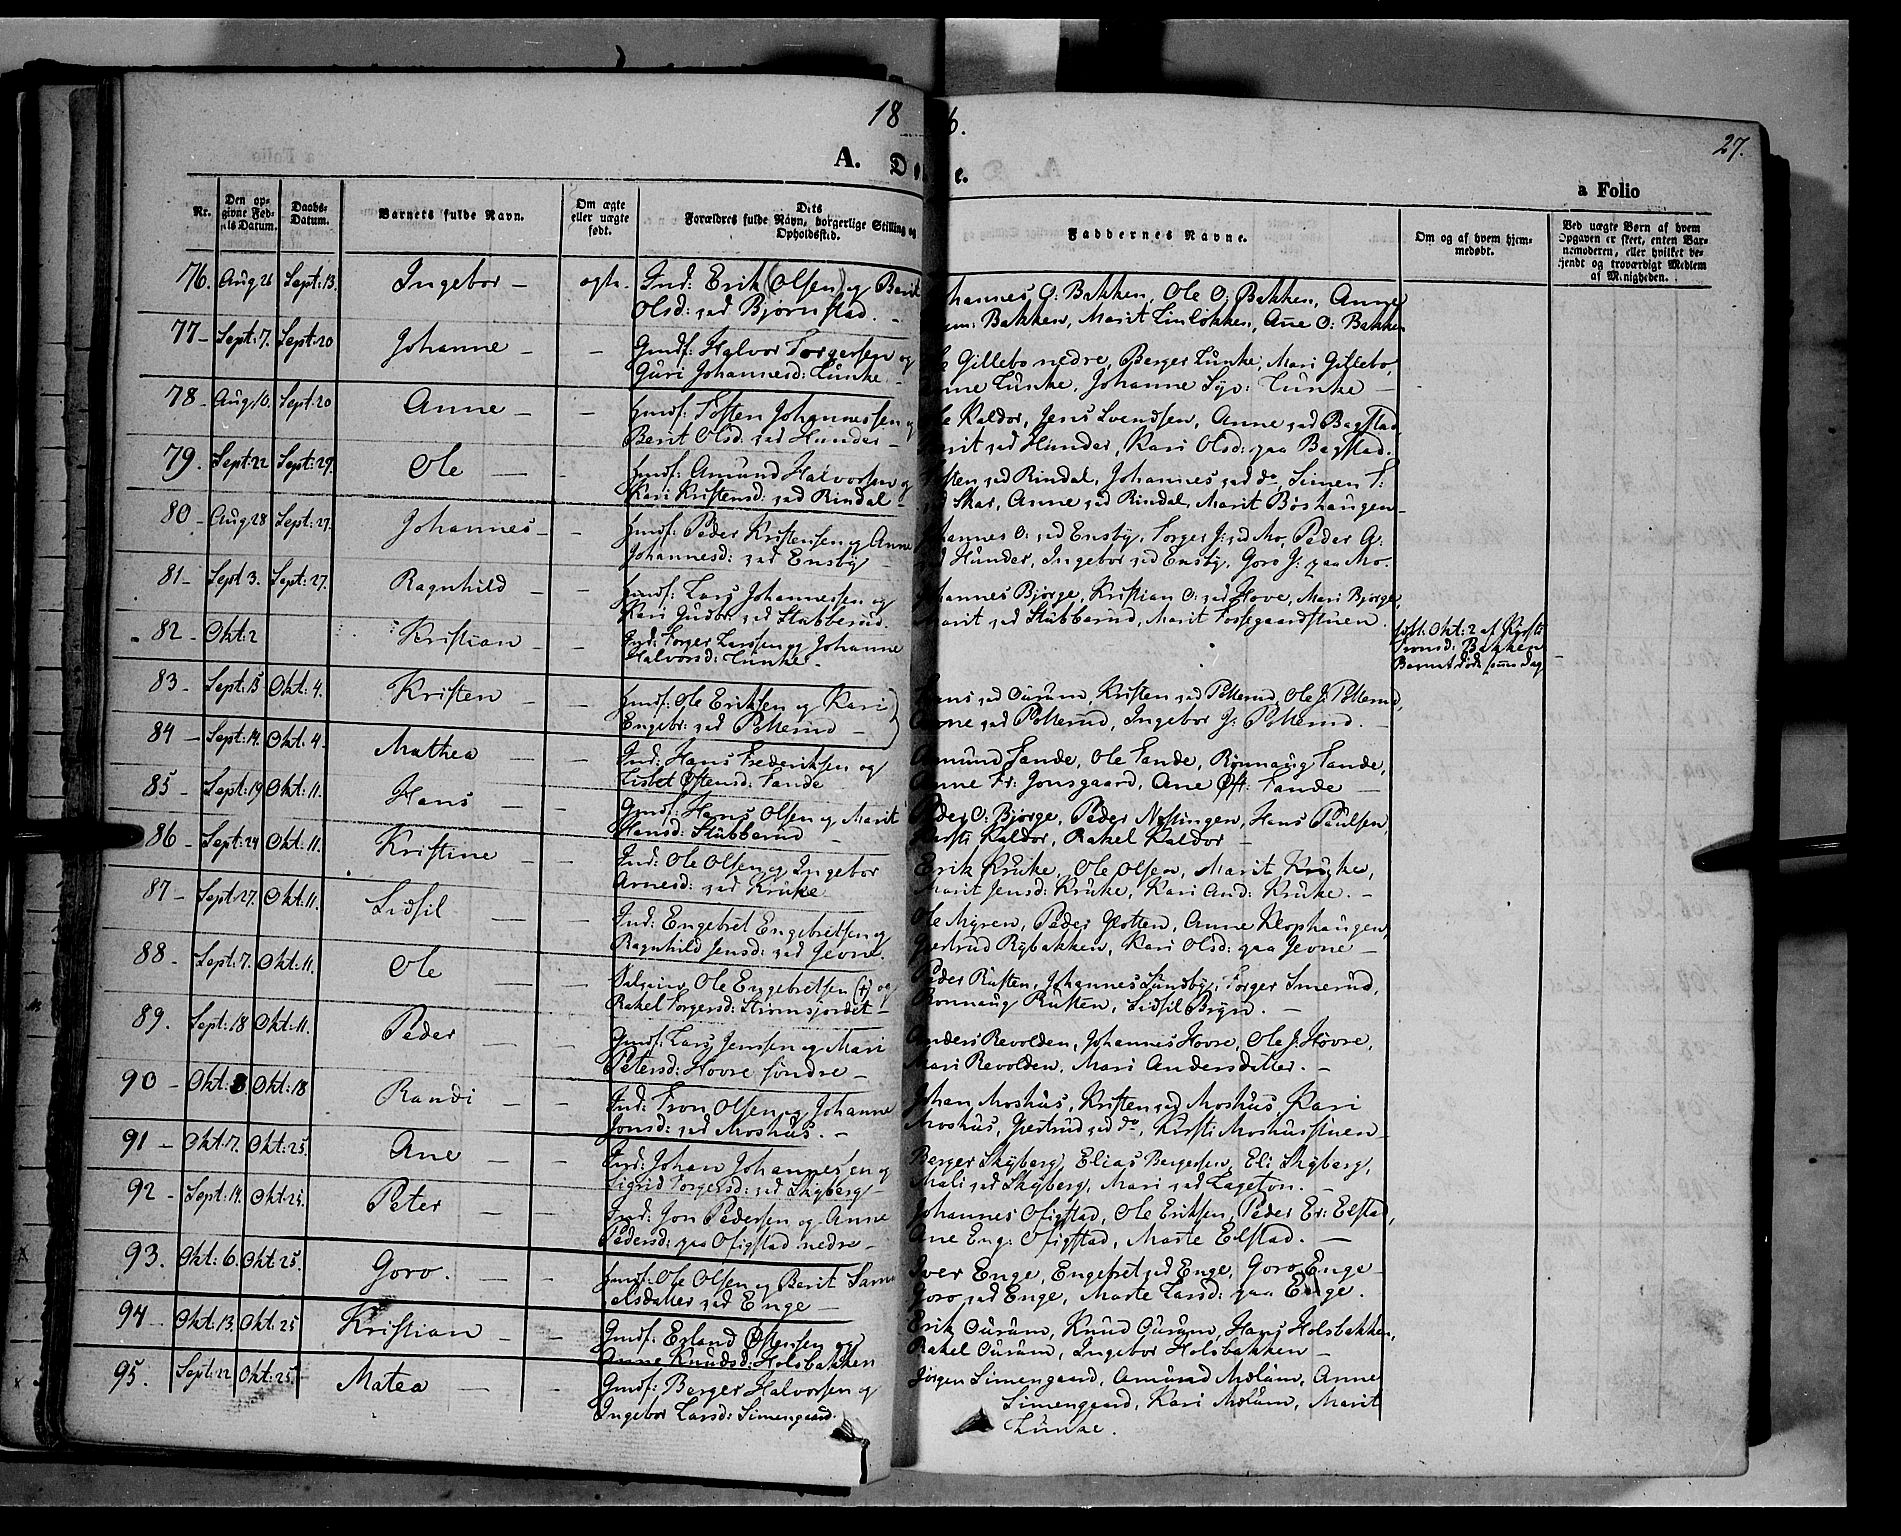 18 6.
27.
A. D e.
a Folio
Nr.
Den op-
givne Fød-
sels Datum.
Daabs-
Datum.
Barnets fulde Navn.
Om ægte
eller uægte
født.
Dets
Forældres fulde Navn, borgerlige Stilling og
Opholdssted.
Faddernes Navne.
Om og af hvem hjem-
medøbt.
Ved uægte Børn af hvem
Opgaven er skeet, enten Bar-
nemoderen, eller hvilket be-
kjendt og troværdigt Medlem
af Menigheden.
76. Aug 26 Sept: 13. Ingebor – ægte. Ind: Erik (Olsen) og Berit
Olsd: ved Bjørnstad. –
hannes O: Bakken, Ole O: Bakken, Anne
Bakken, Marit Linløkken, Ane O: Bakken
77 – Sept: 7. Sept: 20 Johanne – – Gmdf: Halvor Torgersen og
Guri Johannesd: Lunke. –
Gillebo nedre, Berger Lunke, Mari Gillebo,
nne Lunke, Johanne Syv: Lunke –
78 – Aug 10. Sept: 20 Anne – – hmdf: Tosten Johannessen og
Berit Olsd: ved Hunder –
Kaldor, Jens Svendsen, Anne ved Bøgstad,
rit ved Hunder, Kari Olsd: paa Bøgstad.
79. Sept: 22 Sept: 29. Ole – – hmdf: Amund Halvorsen og
Kari Kristensd: ved Rindal –
sten ved Rindal, Johannes ved do, Simen T:
Skar, Anne ved Rindal, Marit Boshaugen –
80 – Aug 28 Sept: 27. Johannes – – hmdf: Peder Kristensen og Anne
Johannesd: ved Ensby –
hannes O: ved Ensby, Torger J: ved Mo, Peder A:
Hunder, Ingebor ved Ensby, Goro J: paa Mo.
81 – Sept 3. Sept: 27. Ragnhild – – hmdf: Lars Johannessen og
Kari Gudbr: ved Stubberud.
hannes Bjørge, Kristian O: ved Hove, Mari Bjørge,
Marit ved Stubberud, Marit Fossegaardstuen.
82 – Okt: 2 Kristian – – Ind: Torger Larsen og Johanne
Halvorsd: Lunke –
Okt: 2 af
Bakken
Barnet døde samme Dag –
83 – Sept: 15 Okt: 4. Kristen – – hmdf: Ole Eriksen og Kari
Engebr: ved Potterud –
Hans ved Ourum, Kristen ved Potterud, Ole J. Potterud,
Anne ved Potterud, Ingebor J: Potterud.
84 – Sept: 14. Okt: 4. Mathea – – Ind: Hans Frederiksen og
Lisbet Østensd: Sande
Amund Sande, Ole Sande, Rønnaug Sande,
Anne Fr: Jonsgaard, Ane Øst: Sande –
85 – Sept: 19 Okt: 11. Hans – – Gmdf: Hans Olsen og Marit
Hansd: Stubberud –
Peder O: Bjørge, Peder Næsingen, Hans Paulsen,
Kersti Kaldor, Rakel Kaldor –
86 – Sept: 24 Okt: 11. Kristine – – Ind: Ole Olsen og Ingebor
Arnesd: ved Kruke –
Erik Kruke, Ole Olsen, Marit Kruke,
Marit Jensd: Kruke, Kari And: Kruke. –
87 – Sept: 27. Okt: 11. Lidsil – – Ind: Engebret Engebretsen og
Ragnhild Jensd: ved Jevne.
Ole Myren, Peder Flotten, Anne Klophaugen,
Gertrud Rybakken, Kari Olsd: paa Jevne –
88 – Sept: 7. Okt: 11. Ole – – Ole Engebretsen (†) og
Rakel Torgersd:
Peder Rusten, Johannes Sundby, Torger Smerud,
Rønnaug Rusten, Lidsil Bryn. –
89. Sept: 18 Okt: 11. Peder – – Gmdf: Lars Jenssen og Mari
Petersd: Hovre søndre –
Anders Revolden, Johannes Hovre, Ole J. Hovre,
Mari Revolden, Mari Andersdatter. –
90 – Okt: 8 Okt: 18 Randi – – Ind: Tron Olsen og Johanne
Jonsd: ved Moshus. –
Johan Moshus, Kristen ved Moshus Kari
Moshus, Gertrud ved do, Kirsti Moshusstuen –
91 – Okt: 7. Okt: 25. Ane – – Ind: Johan Johannesen og
Sigrid Torgersd: ved Skyberg –
Berger Skyberg, Elias Bergersen, Eli Skyberg,
Mali ved Skyberg, Mari ved Lageton. –
92 – Sept: 14. Okt: 25. Peter – – Ind: Jon Pedersen og Anne
Pedersd: paa Ofigstad nedre –
Johannes Ofigstad, Ole Eriksen, Peder Er: Elstad,
Ane Eng: Ofigstad, Marte Elstad. –
93. Okt: 6. Okt: 25. Goro. – – hmdf: Ole Olsen og Berit Sam-
elsdatter ved Enge –
Iver Enge, Engebret ved Enge, Goro Enge
Goro ved Enge, Marte Larsd: paa Enge.
94 – Okt: 13. Okt: 25 Kristian – – Gmdf: Erland Østensen og
Anne Knudsd: Holsbakken
Erik Ourum, Knud Ourum, Hans Holsbakken,
Rakel Ourum, Ingebor Holsbakken –
95. Sept: 22 Okt: 25. Matea – – Gmdf: Berger Halvorsen og
Ingebor Larsd: Simengaard.
Jørgen Simengaard, Amund Molum, Anne
Simengaard, Kari Molum, Marit
Lunke.